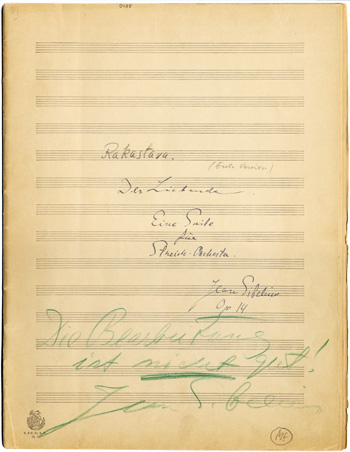 Rakastava.
(Erste Version)
Der Liebende
Eine Suite
für
Streich-Orchester.
Jean Sibelius
Op. 14
Die Bearbeitung
ist nicht gut!
Jean Sibelius